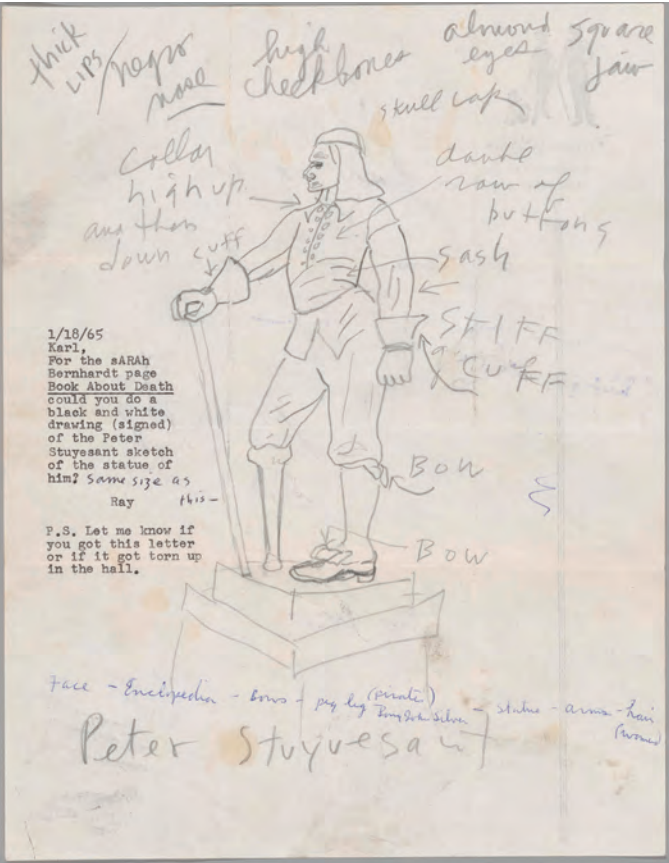 thick
LIPS/
negro
nose
high
cheekbones
almond
eyes
square
jaw
skull cap
Collar
high up
and then
down
cuff
double
row of
buttons
sash
STIFF
CUFF
1/18/65
Karl,
For the sARAh
Bernhardt page
Book About Death
could you do a
black and white
drawing (signed)
of the Peter
Stuyesant sketch
of the statue of
him? Same size as
Ray this-
P.S. Let me know if
you got this letter
or if it got torn up
in the hall.
Bow
Bow
Face - Encilopedia - Bows - peg leg (pirate) Long John Silver - statue - arms - hair
(women)
Peter Stuyvesant